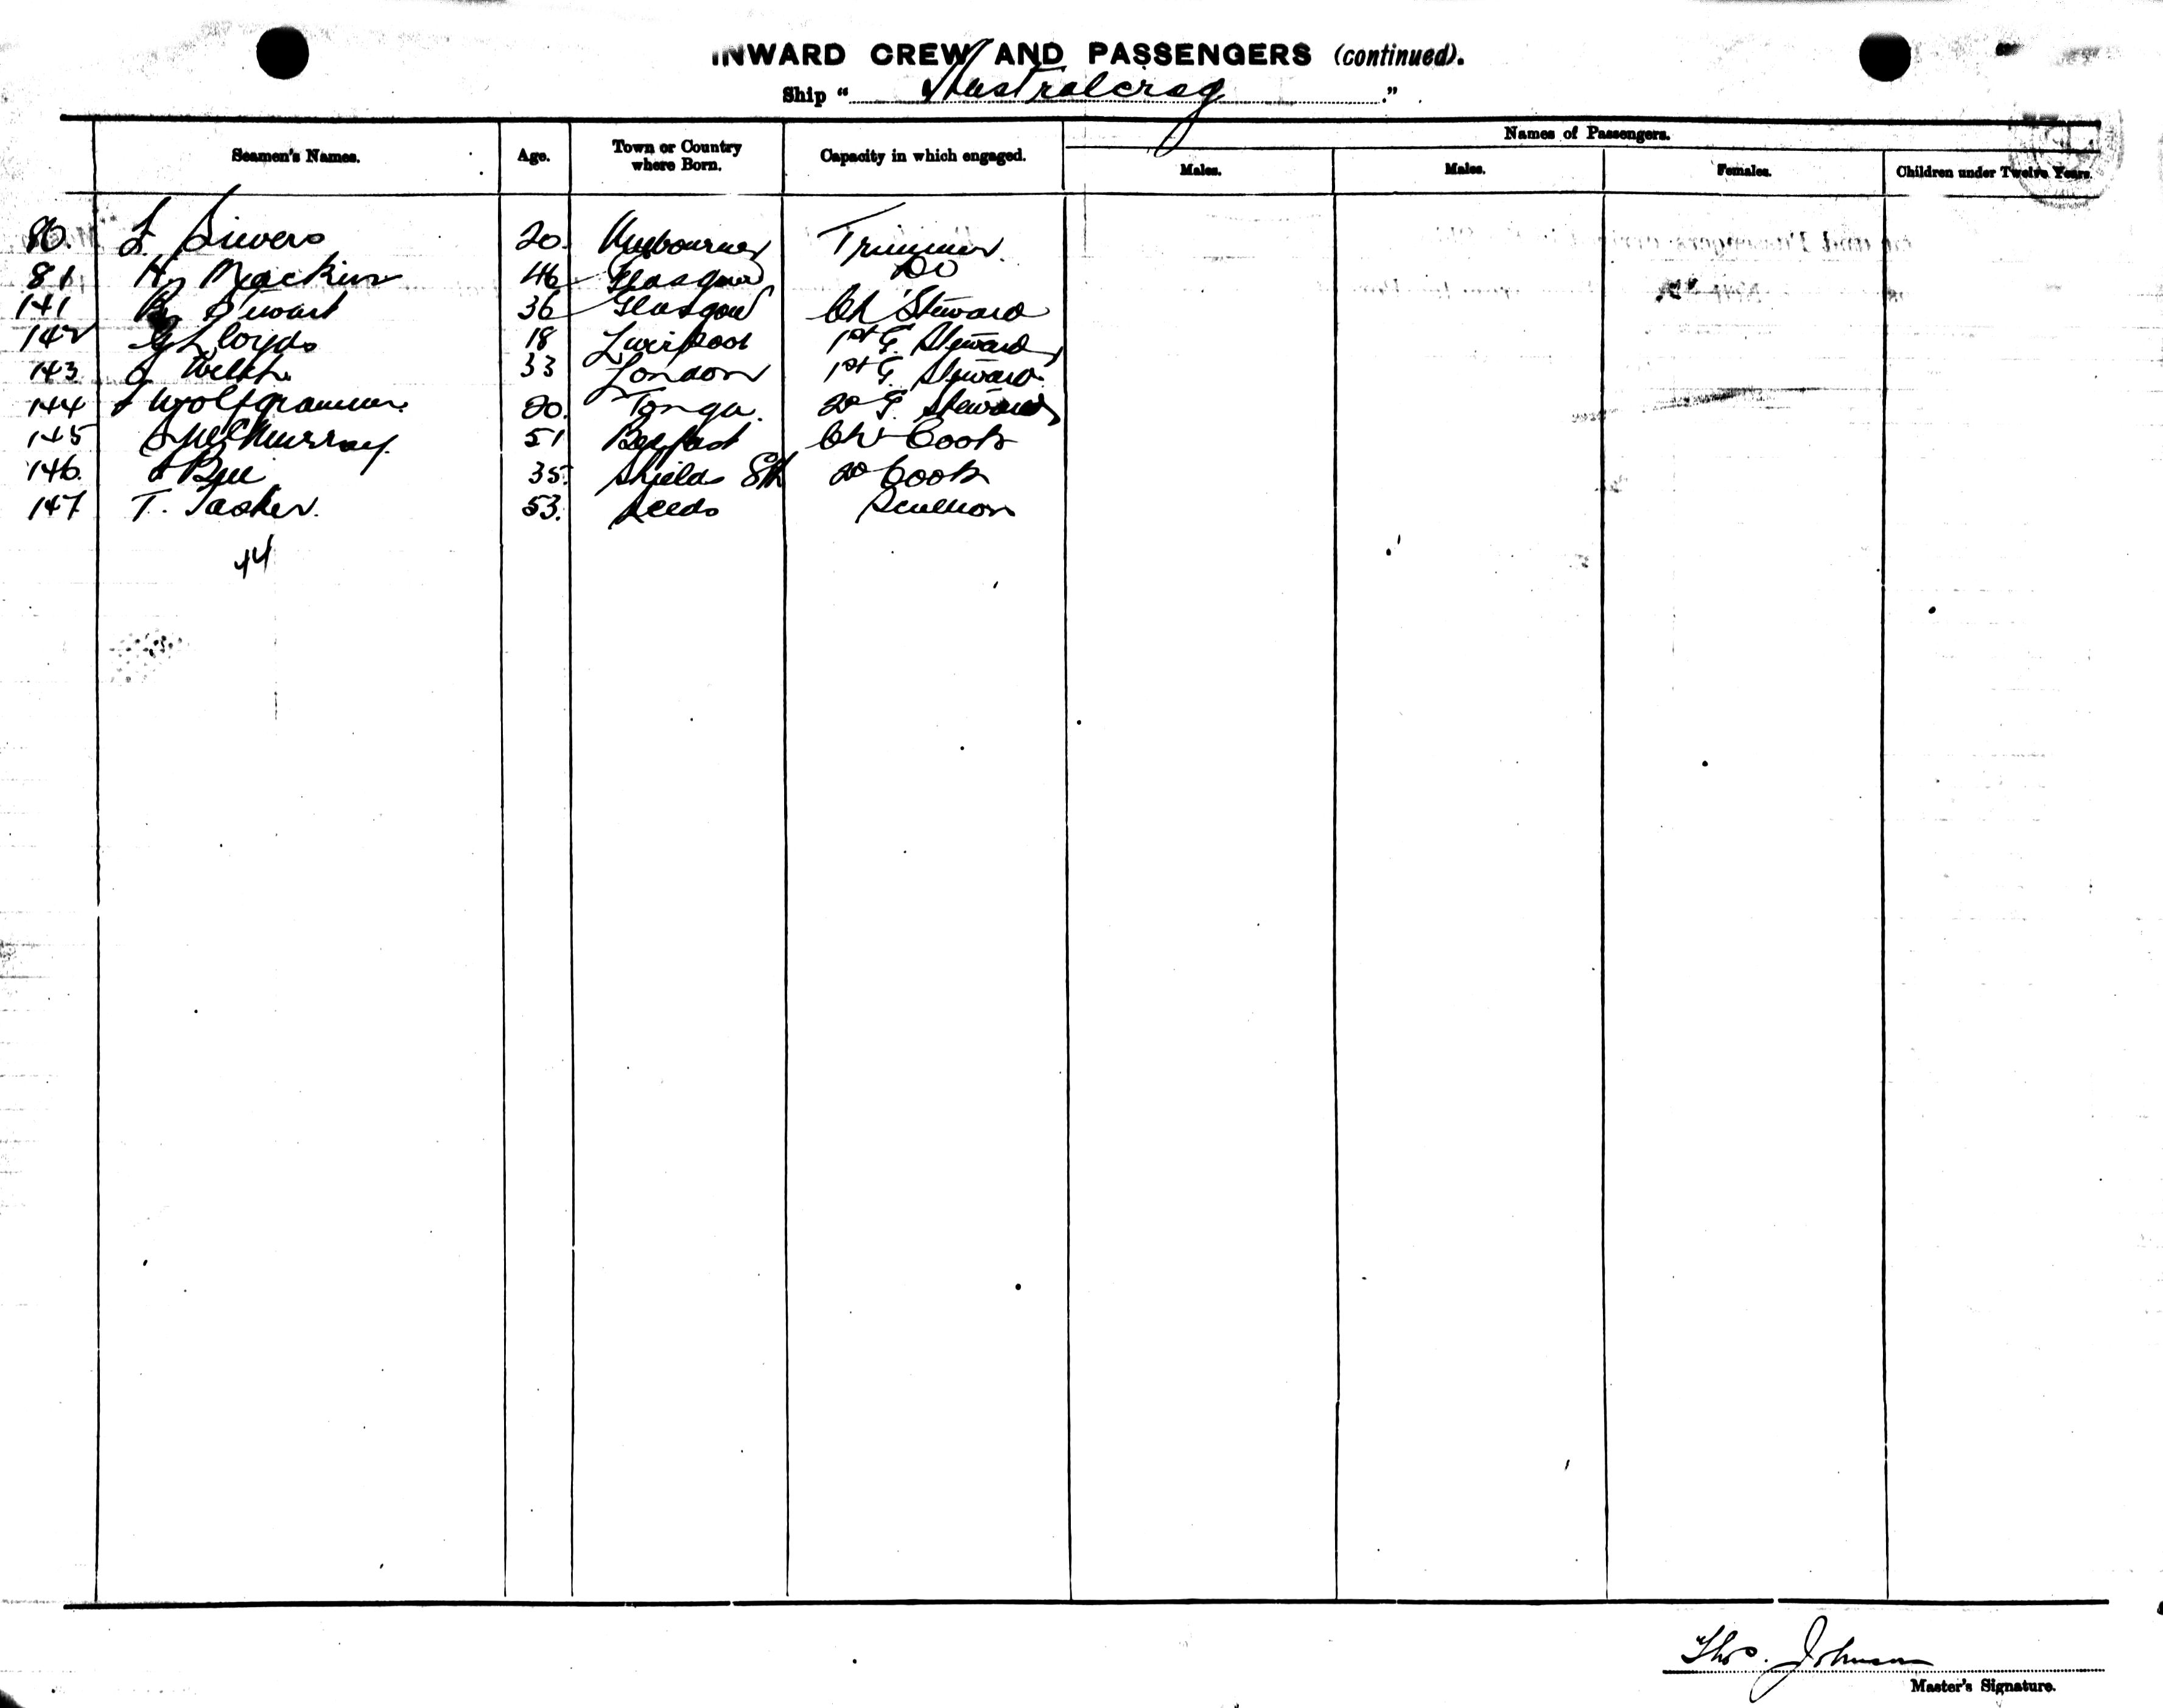 INWARD CREW AND PASSENGERS (continued).
Ship "Australcrag."
Names of Passengers.
Seamen's Names. Age. Town or Country where Born. Capacity in which engaged. Males. Males. Females. Children under Twelve Years.
80. Sievers 20. Melbourne Trimmer.
81 H Mackin 46 Glasgow Do
141 Stewart 36 Glasgow Ch Steward
142 G Lloyds 18 Liverpool 1st G. Steward
143. J Welsh. 33 London 1st G. Steward.
144 Wolfgramm. 20. Tonga. 2d G. Steward
145 McMurray. 51 Belfast Chf Cook
146. 35. Shields Sth 2d Cook
147 T. Tasker. 53. Leeds Scullion
44
Thos. Johnson
Master's Signature.